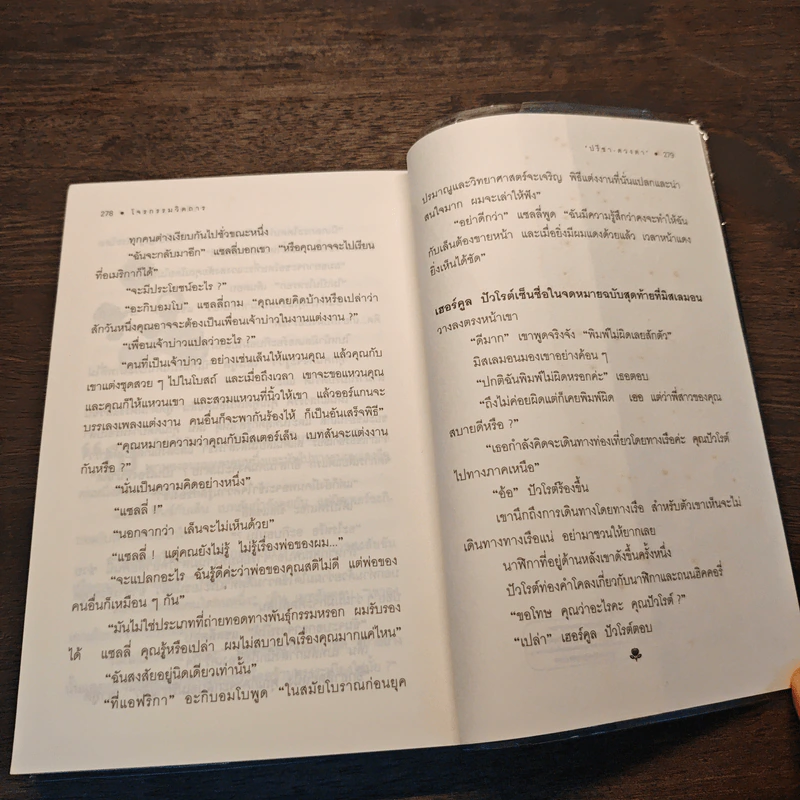 278 • โจรกรรมจิตการ
ทุกคนต่างเงียบกันไปชั่วขณะหนึ่ง
“ฉันจะกลับมาอีก” แซลลี่บอกเขา “หรือคุณอาจจะไปเรียน
ที่อเมริกาก็ได้”
“จะมีประโยชน์อะไร ?”
“อะกิบอมโบ” แซลลี่ถาม “คุณเคยคิดบ้างหรือเปล่าว่า
สักวันหนึ่งคุณอาจจะต้องเป็นเพื่อนเจ้าบ่าวในงานแต่งงาน ?”
“เพื่อนเจ้าบ่าวแปลว่าอะไร ?”
“คนที่เป็นเจ้าบ่าว อย่างเช่นเล็นให้แหวนคุณ แล้วคุณกับ
เขาแต่งชุดสวย ๆ ไปในโบสถ์ และเมื่อถึงเวลา เขาจะขอแหวนคุณ
และคุณก็ให้แหวนเขา และสวมแหวนที่นิ้วให้เขา แล้วออร์แกนจะ
บรรเลงเพลงแต่งงาน คนอื่นก็จะพากันร้องไห้ ก็เป็นอันเสร็จพิธี”
“คุณหมายความว่าคุณกับมิสเตอร์เล็น เบทสันจะแต่งงาน
กันหรือ ?”
“นั่นเป็นความคิดอย่างหนึ่ง”
“แซลลี่ !”
“นอกจากว่า เล็นจะไม่เห็นด้วย”
“แซลลี่ ! แต่คุณยังไม่รู้ ไม่รู้เรื่องพ่อของผม...”
“จะแปลกอะไร ฉันรู้ดีค่ะว่าพ่อของคุณสติไม่ดี แต่พ่อของ
คนอื่นก็เหมือน ๆ กัน”
“มันไม่ใช่ประเภทที่ถ่ายทอดทางพันธุ์กรรมหรอก ผมรับรอง
ได้ แซลลี่ คุณรู้หรือเปล่า ผมไม่สบายใจเรื่องคุณมากแค่ไหน”
“ฉันสงสัยอยู่นิดเดียวเท่านั้น”
“ที่แอฟริกา” อะกิบอมโบพูด “ในสมัยโบราณก่อนยุค
“ปรีชา-ดวงตา” • 279
ปรมาณูและวิทยาศาสตร์จะเจริญ พิธีแต่งงานที่นั่นแปลกและน่า
สนใจมาก ผมจะเล่าให้ฟัง”
“อย่าดีกว่า” แซลลี่พูด “ฉันมีความรู้สึกว่าคงจะทำให้ฉัน
กับเล็นต้องขายหน้า และเมื่อยิ่งมีผมแดงด้วยแล้ว เวลาหน้าแดง
ยิ่งเห็นได้ชัด”
เฮอร์คูล ปัวโรต์เซ็นชื่อในจดหมายฉบับสุดท้ายที่มิสเลมอน
วางลงตรงหน้าเขา
“ดีมาก” เขาพูดจริงจัง “พิมพ์ไม่ผิดเลยสักตัว”
มิสเลมอนมองเขาอย่างค้อน ๆ
“ปกติฉันพิมพ์ไม่ผิดหรอกค่ะ” เธอตอบ
“ถึงไม่ค่อยผิดแต่ก็เคยพิมพ์ผิด เธอ แต่ว่าพี่สาวของคุณ
สบายดีหรือ ?”
“เธอกำลังคิดจะเดินทางท่องเที่ยวโดยทางเรือค่ะ คุณปัวโรต์
ไปทางภาคเหนือ”
“อ้อ” ปัวโรต์ร้องขึ้น
เขานึกถึงการเดินทางโดยทางเรือ สำหรับตัวเขาเห็นจะไม่
เดินทางทางเรือแน่ อย่ามาชวนให้ยากเลย
นาฬิกาที่อยู่ด้านหลังเขาดังขึ้นครั้งหนึ่ง
ปัวโรต์ท่องคำโคลงเกี่ยวกับนาฬิกาและถนนฮิคคอรี่
“ขอโทษ คุณว่าอะไรคะ คุณปัวโรต์ ?”
“เปล่า” เฮอร์คูล ปัวโรต์ตอบ